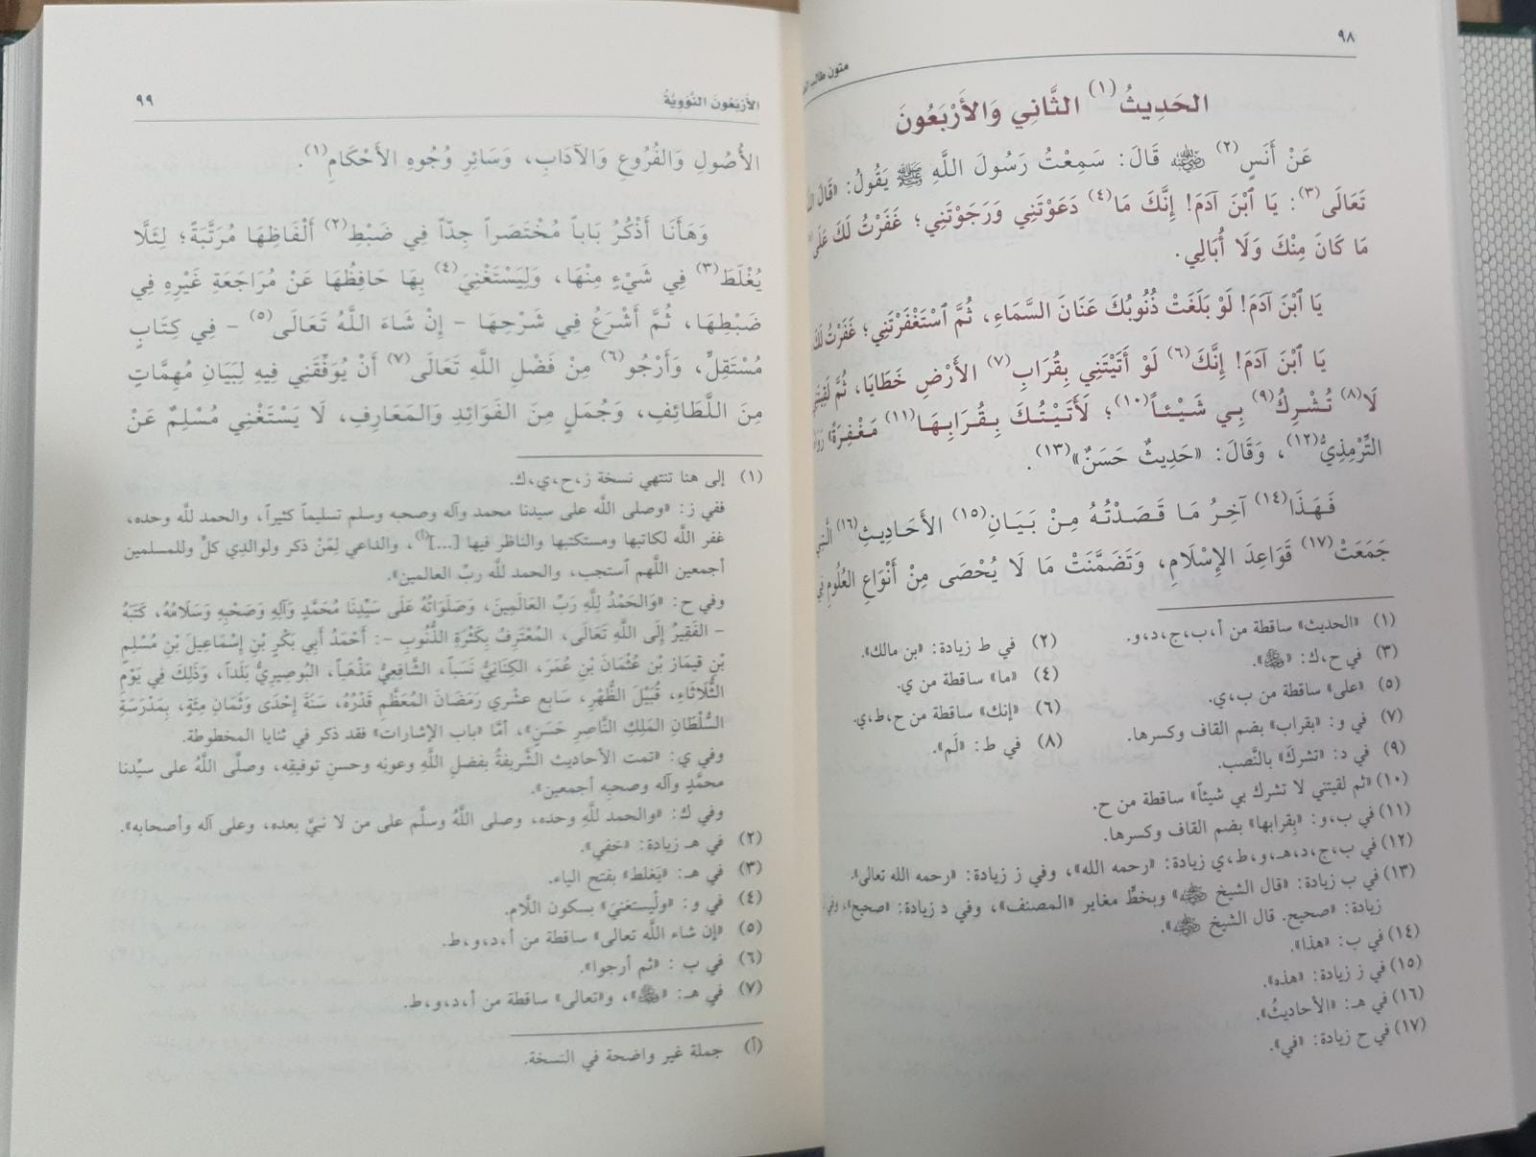 ٩٨
متون طالب
الحَدِيثُ(١) الثَّانِي وَالأَرْبَعُونَ
عَنْ أَنَسٍ(٢) ﵁ قَالَ: سَمِعْتُ رَسُولَ اللَّهِ ﷺ يَقُولُ: «قَالَ
تَعَالَى(٣): يَا ٱبْنَ آدَمَ! إِنَّكَ مَا(٤) دَعَوْتَنِي وَرَجَوْتَنِي؛ غَفَرْتُ لَكَ عَلَى
مَا كَانَ مِنْكَ وَلَا أُبَالِي.
يَا ٱبْنَ آدَمَ! لَوْ بَلَغَتْ ذُنُوبُكَ عَنَانَ السَّمَاءِ، ثُمَّ ٱسْتَغْفَرْتَنِي؛ غَفَرْتُ لَكَ
يَا ٱبْنَ آدَمَ! إِنَّكَ(٦) لَوْ أَتَيْتَنِي بِقُرَابِ(٧) الأَرْضِ خَطَايَا، ثُمَّ لَقِيتَنِي
لَا(٨) تُشْرِكُ(٩) بِي شَيْئاً(١٠)؛ لَأَتَيْتُكَ بِقُرَابِهَا(١١) مَغْفِرَةً»
التِّرْمِذِيُّ(١٢)، وَقَالَ: «حَدِيثٌ حَسَنٌ»(١٣).
فَهَذَا(١٤) آخِرُ مَا قَصَدْتُهُ مِنْ بَيَانِ(١٥) الأَحَادِيثِ(١٦) الَّتِي
جَمَعَتْ(١٧) قَوَاعِدَ الإِسْلَامِ، وَتَضَمَّنَتْ مَا لَا يُحْصَى مِنْ أَنْوَاعِ العُلُومِ
(١) «الحديث» ساقطة من أ،ب،ج،د،و. (٢) في ط زيادة: «بن مالك».
(٣) في ح،ك: «ﷺ». (٤) «ما» ساقطة من ي.
(٥) «على» ساقطة من ب،ي. (٦) «إنك» ساقطة من ح،ط،ي.
(٧) في و: «بقراب» بضم القاف وكسرها. (٨) في ط: «لَم».
(٩) في د: «تشركَ» بالنَّصب.
(١٠) «ثم لقيتني لا تشرك بي شيئاً» ساقطة من ح.
(١١) في ب،و: «بِقرابها» بضم القاف وكسرها.
(١٢) في ب،ج،د،هـ،و،ط،ي زيادة: «رحمه الله»، وفي ز زيادة: «رحمه الله تعالى».
(١٣) في ب زيادة: «قال الشيخ ﵁» وبخطٍّ مغاير «المصنف»، وفي د زيادة: «صحيح»،
زيادة: «صحيح. قال الشيخ ﵁».
(١٤) في ب: «هذا».
(١٥) في ز زيادة: «هذه».
(١٦) في هـ: «الأحاديثُ».
(١٧) في ح زيادة: «في».
الأَرْبَعُونَ النَّوَوِيَّةُ ٩٩
الأُصُولِ وَالفُرُوعِ وَالآدَابِ، وَسَائِرِ وُجُوهِ الأَحْكَامِ(١).
وَهَأَنَا أَذْكُرُ بَاباً مُخْتَصَراً جِدّاً فِي ضَبْطِ(٢) أَلْفَاظِهَا مُرَتَّبَةً؛ لِئَلَّا
يُغْلَطَ(٣) فِي شَيْءٍ مِنْهَا، وَلِيَسْتَغْنِيَ(٤) بِهَا حَافِظُهَا عَنْ مُرَاجَعَةِ غَيْرِهِ فِي
ضَبْطِهَا، ثُمَّ أَشْرَعُ فِي شَرْحِهَا - إِنْ شَاءَ اللَّهُ تَعَالَى(٥) - فِي كِتَابٍ
مُسْتَقِلٍّ، وَأَرْجُو(٦) مِنْ فَضْلِ اللَّهِ تَعَالَى(٧) أَنْ يُوَفِّقَنِي فِيهِ لِبَيَانِ مُهِمَّاتٍ
مِنَ اللَّطَائِفِ، وَجُمَلٍ مِنَ الفَوَائِدِ وَالمَعَارِفِ، لَا يَسْتَغْنِي مُسْلِمٌ عَنْ
(١) إلى هنا تنتهي نسخة ز،ح،ي،ك.
ففي ز: «وصلى اللَّه على سيدنا محمد وآله وصحبه وسلم تسليماً كثيراً، والحمد للَّه وحده،
غفر اللَّه لكاتبها ومستكتبها والناظر فيها [...](أ)، والداعي لِمَنْ ذكر ولوالدِي كلٍّ وللمسلمين
أجمعين اللَّهم ٱستجب، والحمد للَّه ربِّ العالمين».
وفي ح: «وَالحَمْدُ لِلَّهِ رَبِّ العَالَمِينَ، وَصَلَوَاتُهُ عَلَى سَيِّدِنَا مُحَمَّدٍ وَآلِهِ وَصَحْبِهِ وَسَلَامُهُ، كَتَبَهُ
- الفَقِيرُ إِلَى اللَّهِ تَعَالَى، المُعْتَرِفُ بِكَثْرَةِ الذُّنُوبِ -: أَحْمَدُ أَبِي بَكْرِ بْنِ إِسْمَاعِيلَ بْنِ مُسْلِمِ
بْنِ قيماز بْنِ عُثْمَانَ بْنِ عُمَرَ، الكِنَانِيُّ نَسَباً، الشَّافِعِيُّ مَذْهَباً، البُوصِيرِيُّ بَلَداً، وَذَلِكَ فِي يَوْمِ
الثُّلَاثَاءِ، قُبَيْلَ الظُّهْرِ، سَابِعِ عشْرِي رَمَضَانَ المُعَظَّمِ قَدْرُهُ، سَنَةَ إِحْدَى وَثَمَانِ مِئَةٍ، بِمَدْرَسَةِ
السُّلْطَانِ المَلِكِ النَّاصِرِ حَسَنٍ»، أمَّا «باب الإشارات» فقد ذكر في ثنايا المخطوطة.
وفي ي: «تمت الأحاديث الشَّريفةُ بفضلِ اللَّهِ وعونِه وحسنِ توفيقِه، وصلَّى اللَّهُ على سيِّدنا
محمَّدٍ وآله وصحبِه أجمعين».
وفي ك: «والحمد للَّهِ وحده، وصلى اللَّهُ وسلَّم على من لا نبيَّ بعده، وعلى آله وأصحابه».
(٢) في هـ زيادة: «خفي».
(٣) في هـ: «يَغلط» بفتح الياء.
(٤) في و: «ولْيستغنيَ» بسكون اللَّام.
(٥) «إن شاء اللَّه تعالى» ساقطة من أ،د،و،ط.
(٦) في ب : «ثم أرجوا».
(٧) في هـ: «ﷻ»، و«تعالى» ساقطة من أ،د،و،ط.
(أ) جملة غير واضحة في النسخة.